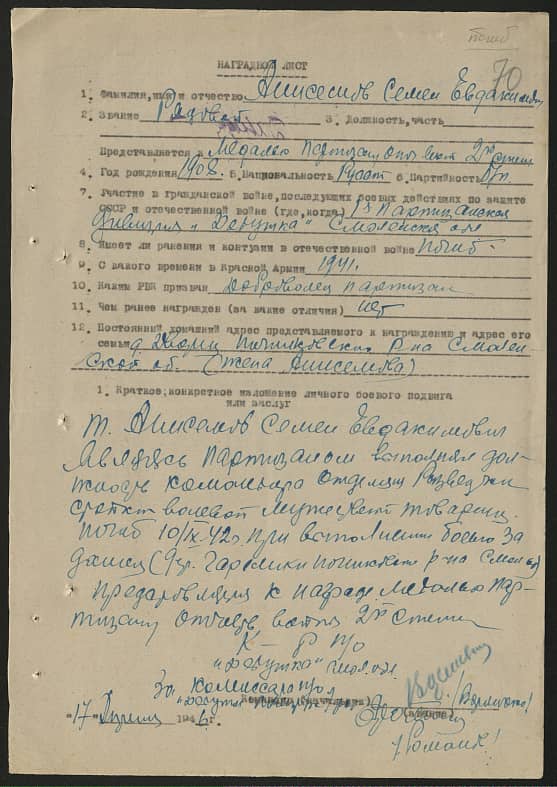 погиб
70
НАГРАДНОЙ ЛИСТ
1. Фамилия, имя и отчество Анисемов Семен Евдакимович
2. Звание Рядовой 3. Должность, часть
Представляется к Медалью Партизану отеч. 2й степ
4. Год рождения 1908. 5. Национальность 6. Партийность
7. Участие в гражданской войне, последующих боевых действиях по защите
СССР и отечественной войне (где, когда) Партизанская
"Дедушка" Смоленская обл
8. Имеет ли ранения и контузии в отечественной войне погиб
9. С какого времени в Красной Армии 1941.
10. Каким РВК призван Доброволец партизан
11. Чем ранее награжден (за какие отличия) нет
12. Постоянный домашний адрес представляемого к награждению и адрес его
семьи Починковский р-на Смолен-
ской об. (жена Анисемова)
1. Краткое, конкретное изложение личного боевого подвига
или заслуг
т. Анисемов Семен Евдакимович
Являясь Партизаном выполнял дол-
жность командира отделения Разведки
волевой товарищ.
Погиб 10/IX.42г. при выполнении боевого за
дания ( р-на Смол)
к награде медалью Пар-
тизану отечеств войны 2й степени
К-р п/о
"Дедушка"
За комиссара п/о
"17" Апреля 1946г.